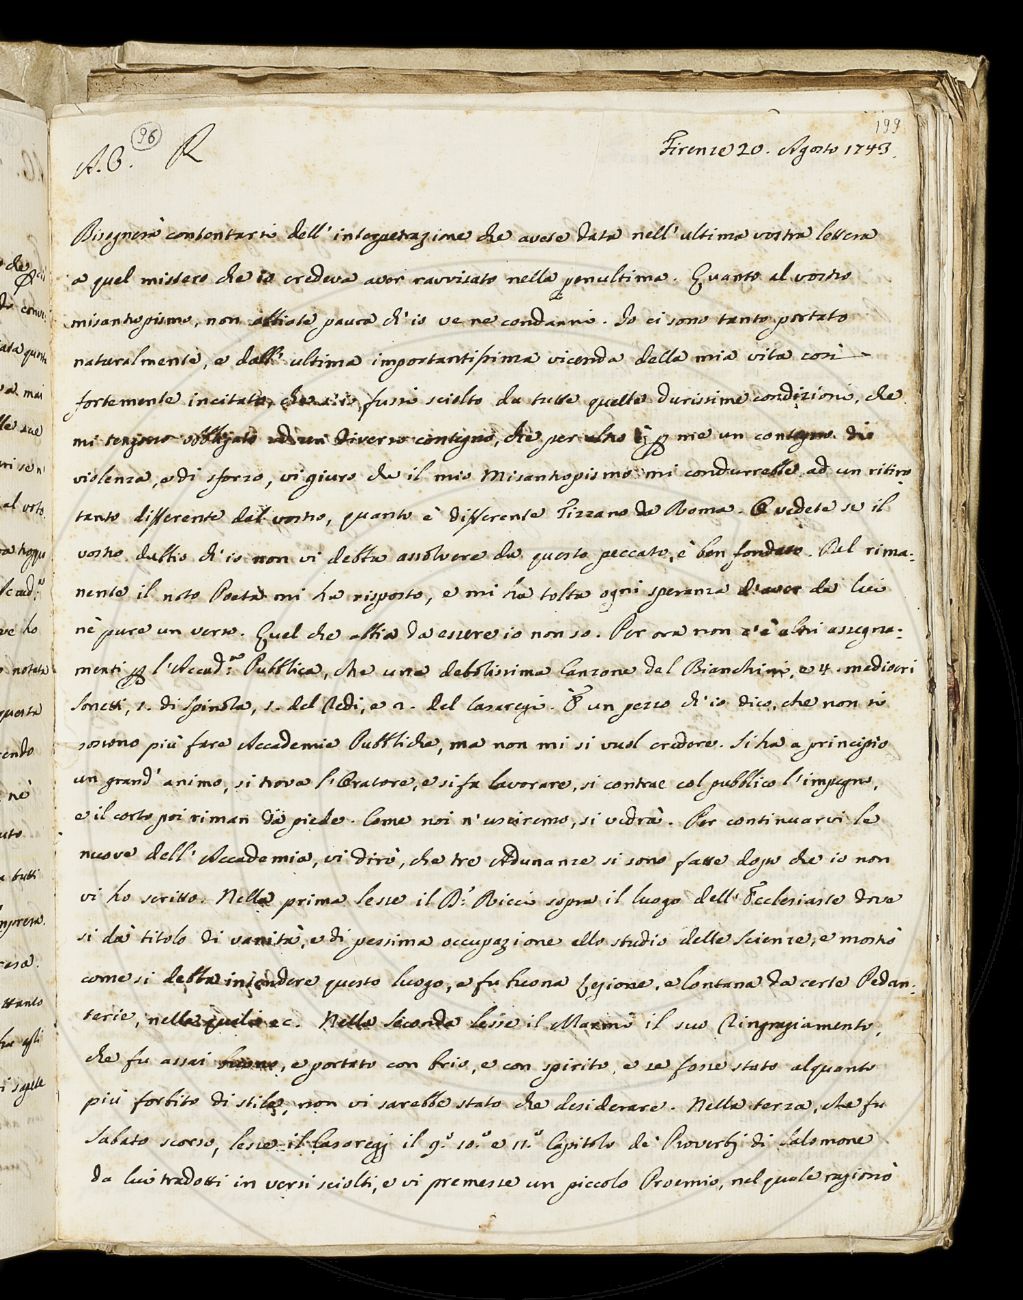 199
96
A.C. R Firenze 20. Agosto 1743.
Bisognerà contentarsi dell' interpetrazione che avete data nell' ultima vostra lettera
a quel mistero che io credeva aver ravvisato nella penultima. Quanto al vostro
misantropismo, non abbiate paura ch' io ve ne condanni. Io ci sono tanto portato
naturalmente, e dall' ultima importantissima vicenda della mia vita così
fortemente incitato, che s' io fussi sciolto da tutte quelle durissime condizioni, che
mi tengono obbligato ad un diverso contegno, che per altro è p me un contegno di
violenza, e di sforzo, vi giuro che il mio Misantropismo mi condurrebbe ad un ritiro
tanto differente dal vostro, quanto è differente Fizzano da Roma. E vedete se il
vostro dubbio ch' io non vi debba assolvere da questo peccato, è ben fondato. Pel rima=
nente il noto Poeta mi ha risposto, e mi ha tolta ogni speranza d'aver da lui
nè pure un verso. Quel che abbia da essere io non so. Per ora non c'è altri assegna=
menti p l'Accad.a Pubblica, che una debolissima Canzone del Bianchini, e 4. mediocri
Sonetti, 1. di Spinola, 1. del Redi, e 2. del Casaregi. È un pezzo ch' io dico, che non si
possono più fare Accademie Pubbliche, ma non mi si vuol credere. Si ha a principio
un grand' animo, si trova l'Oratore, e si fa lavorare, si contrae col pubblico l'impegno,
e il corto poi riman da piede. Come noi n' usciremo, si vedrà. Per continuarvi le
nuove dell' Accademia, vi dirò, che tre Adunanze si sono fatte dopo che io non
vi ho scritto. Nella prima lesse il P. Ricci sopra il luogo dell' Ecclesiaste dove
si dà titolo di vanità, e di pessima occupazione allo studio delle Scienze, e mostrò
come si debba intendere questo luogo, e fu buona Lezione, e lontana da certe Pedan=
terie, nella quale ec. Nella Seconda lesse il Marmi il suo Ringraziamento,
che fu assai buono, e portato con brio, e con spirito, e se fosse stato alquanto
più forbito di stile, non vi sarebbe stato che desiderare. Nella terza, che fu
Sabato scorso, lesse il Casaregj il 9.o 10.o e 11.o Capitolo de' Proverbj di Salomone
da lui tradotti in versi sciolti, e vi premesse un piccolo Proemio, nel quale ragionò